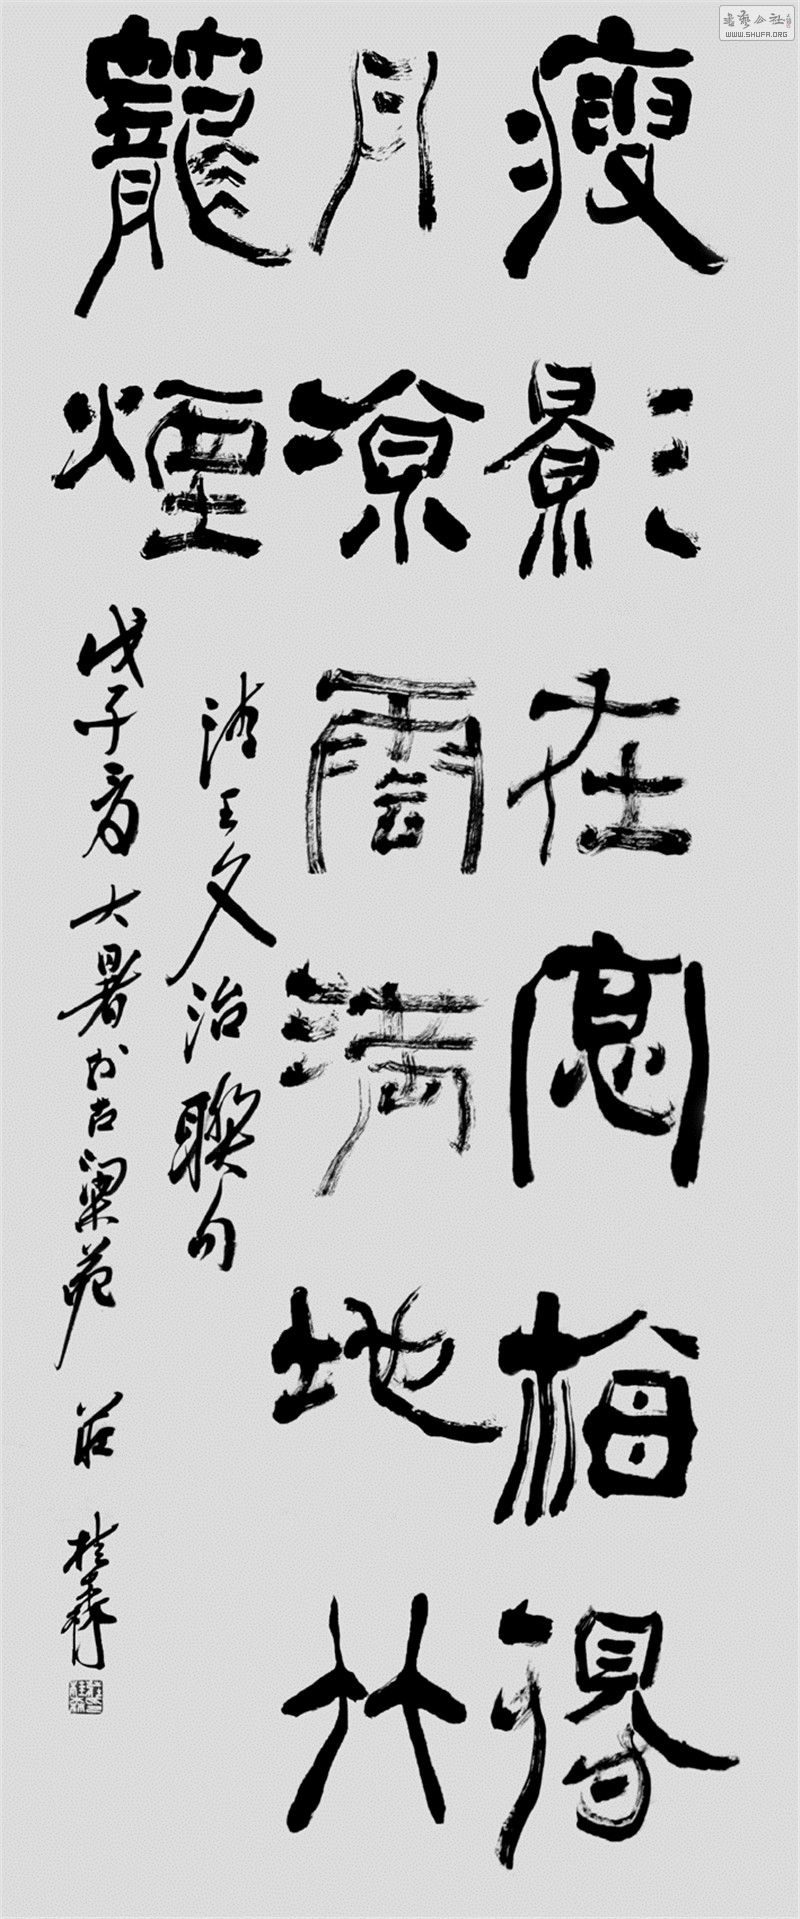 瘦影在窗梅得
月凉雲滿地竹
籠煙
清王文治聯句
戊子夏大暑於古梁苑 莊桂森
書藝公社
WWW.SHUFA.ORG